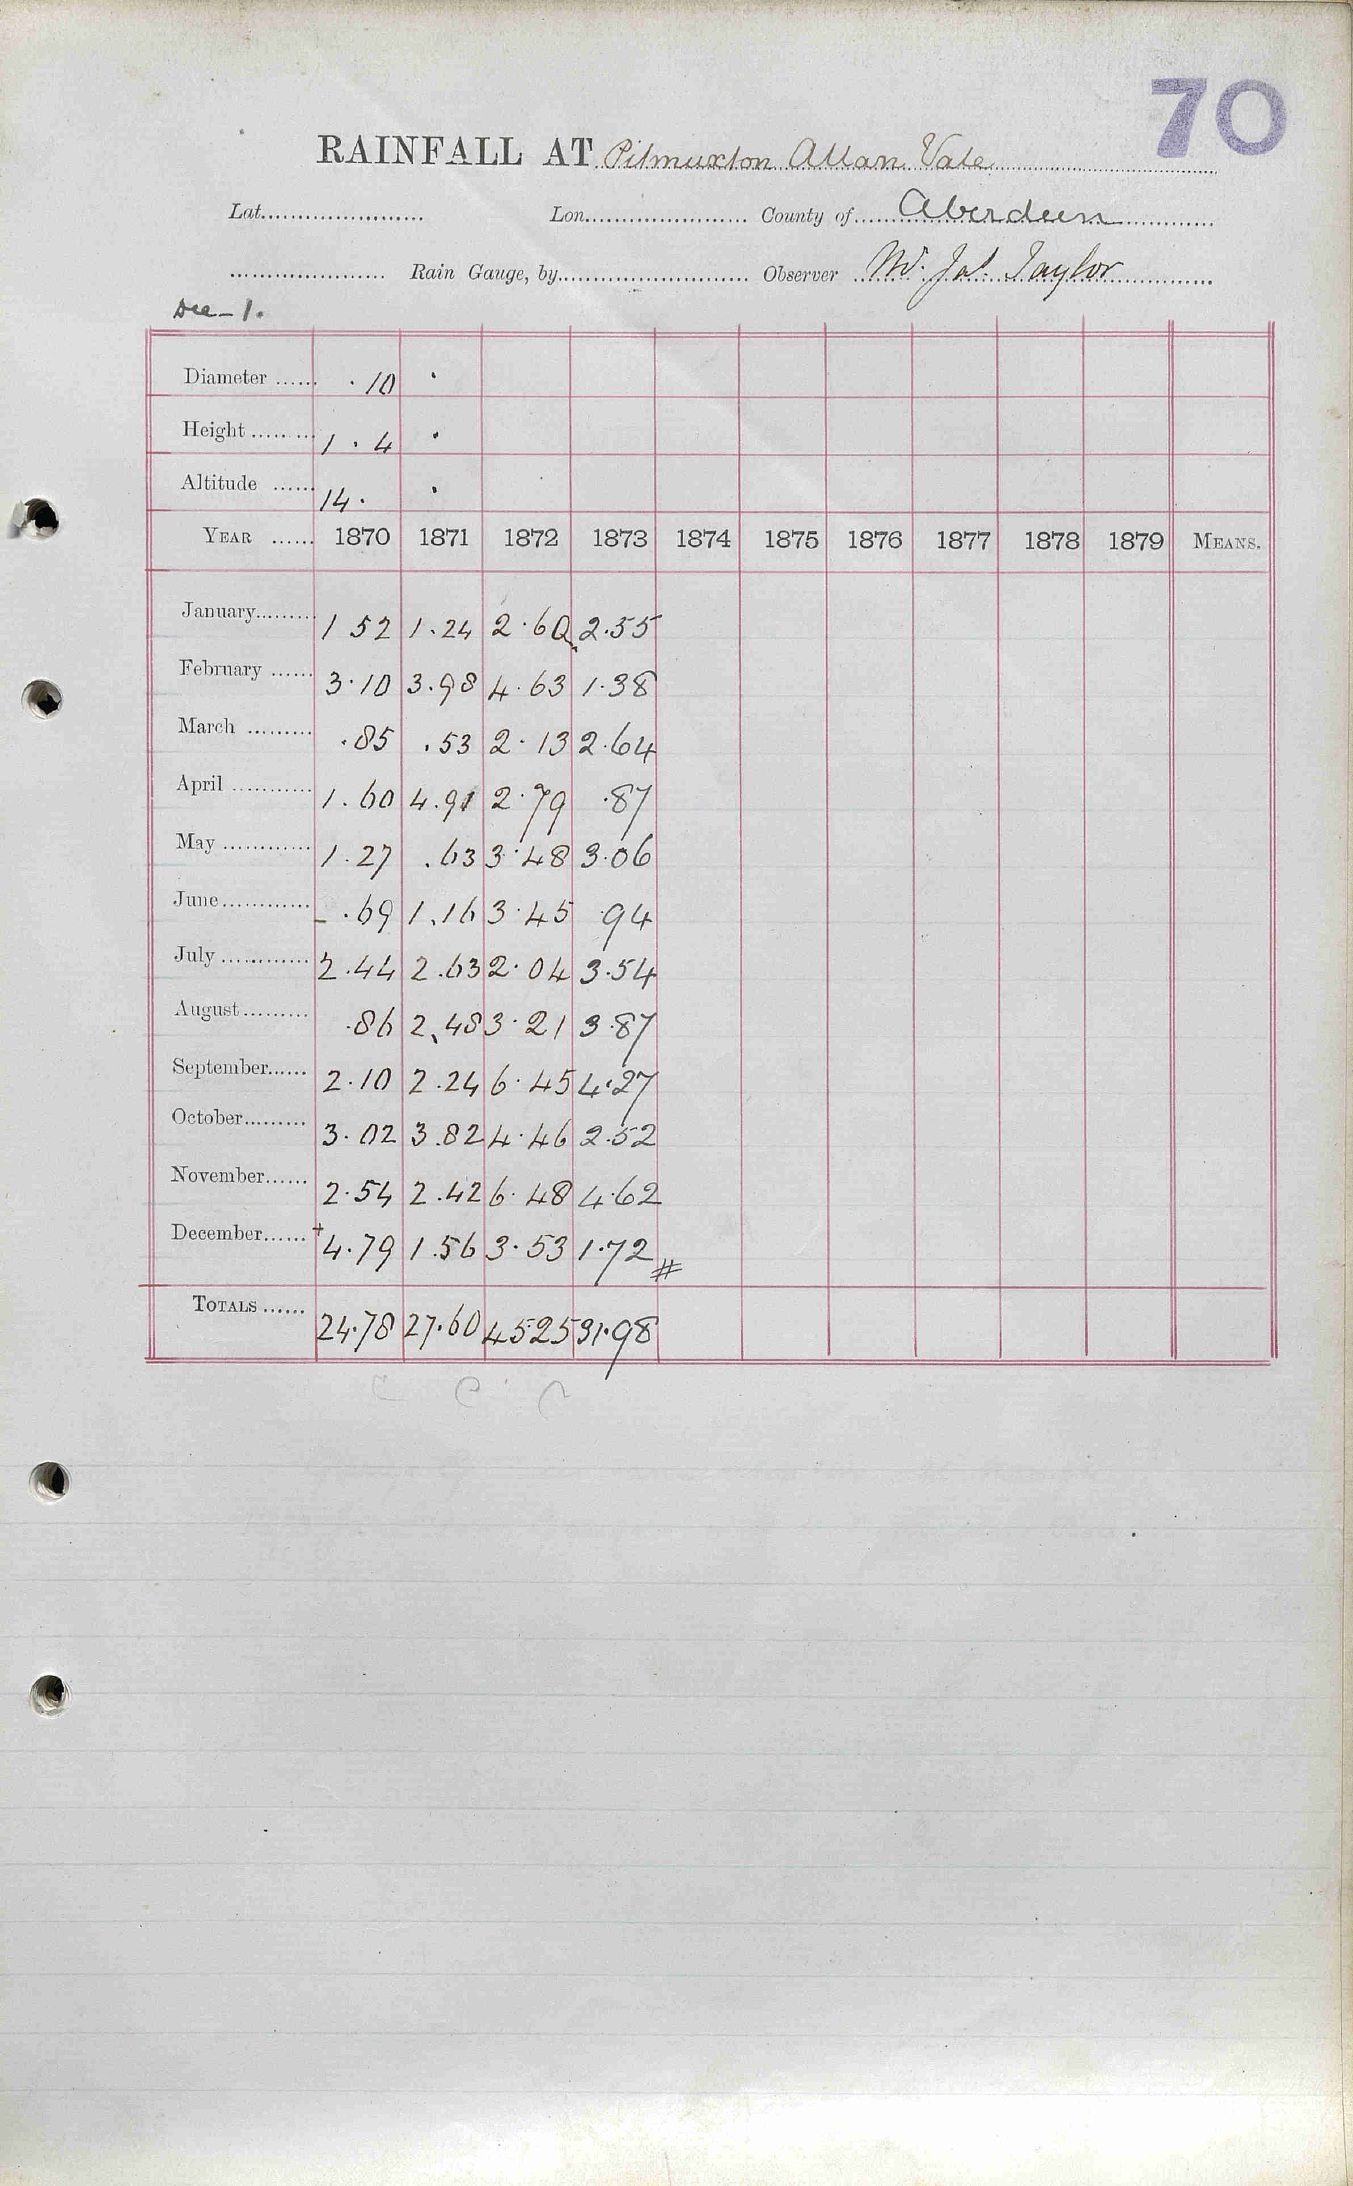 70
RAINFALL AT Pitmuxton Allan Vale
Lat. Lon. County of Aberdeen
Rain Gauge, by Observer Mr. Jas. Taylor
Dee - 1.
Diameter ...... .10 "
Height ......... 1 . 4 "
Altitude ...... 14. "
YEAR ...... 1870 1871 1872 1873 1874 1875 1876 1877 1878 1879 MEANS.
January......... 1 52 1.24 2.60 2.55
February ...... 3.10 3.98 4.63 1.38
March ......... .85 .53 2.13 2.64
April ............ 1.60 4.91 2.79 .87
May ............ 1.27 .63 3.48 3.06
June............ - .69 1.16 3.45 .94
July ............ 2.44 2.63 2.04 3.54
August......... .86 2.48 3.21 3.87
September...... 2.10 2.24 6.45 4.27
October......... 3.02 3.82 4.46 2.52
November...... 2.54 2.42 6.48 4.62
December...... + 4.79 1.56 3.53 1.72 #
TOTALS ...... 24.78 27.60 45.25 31.98
C C C